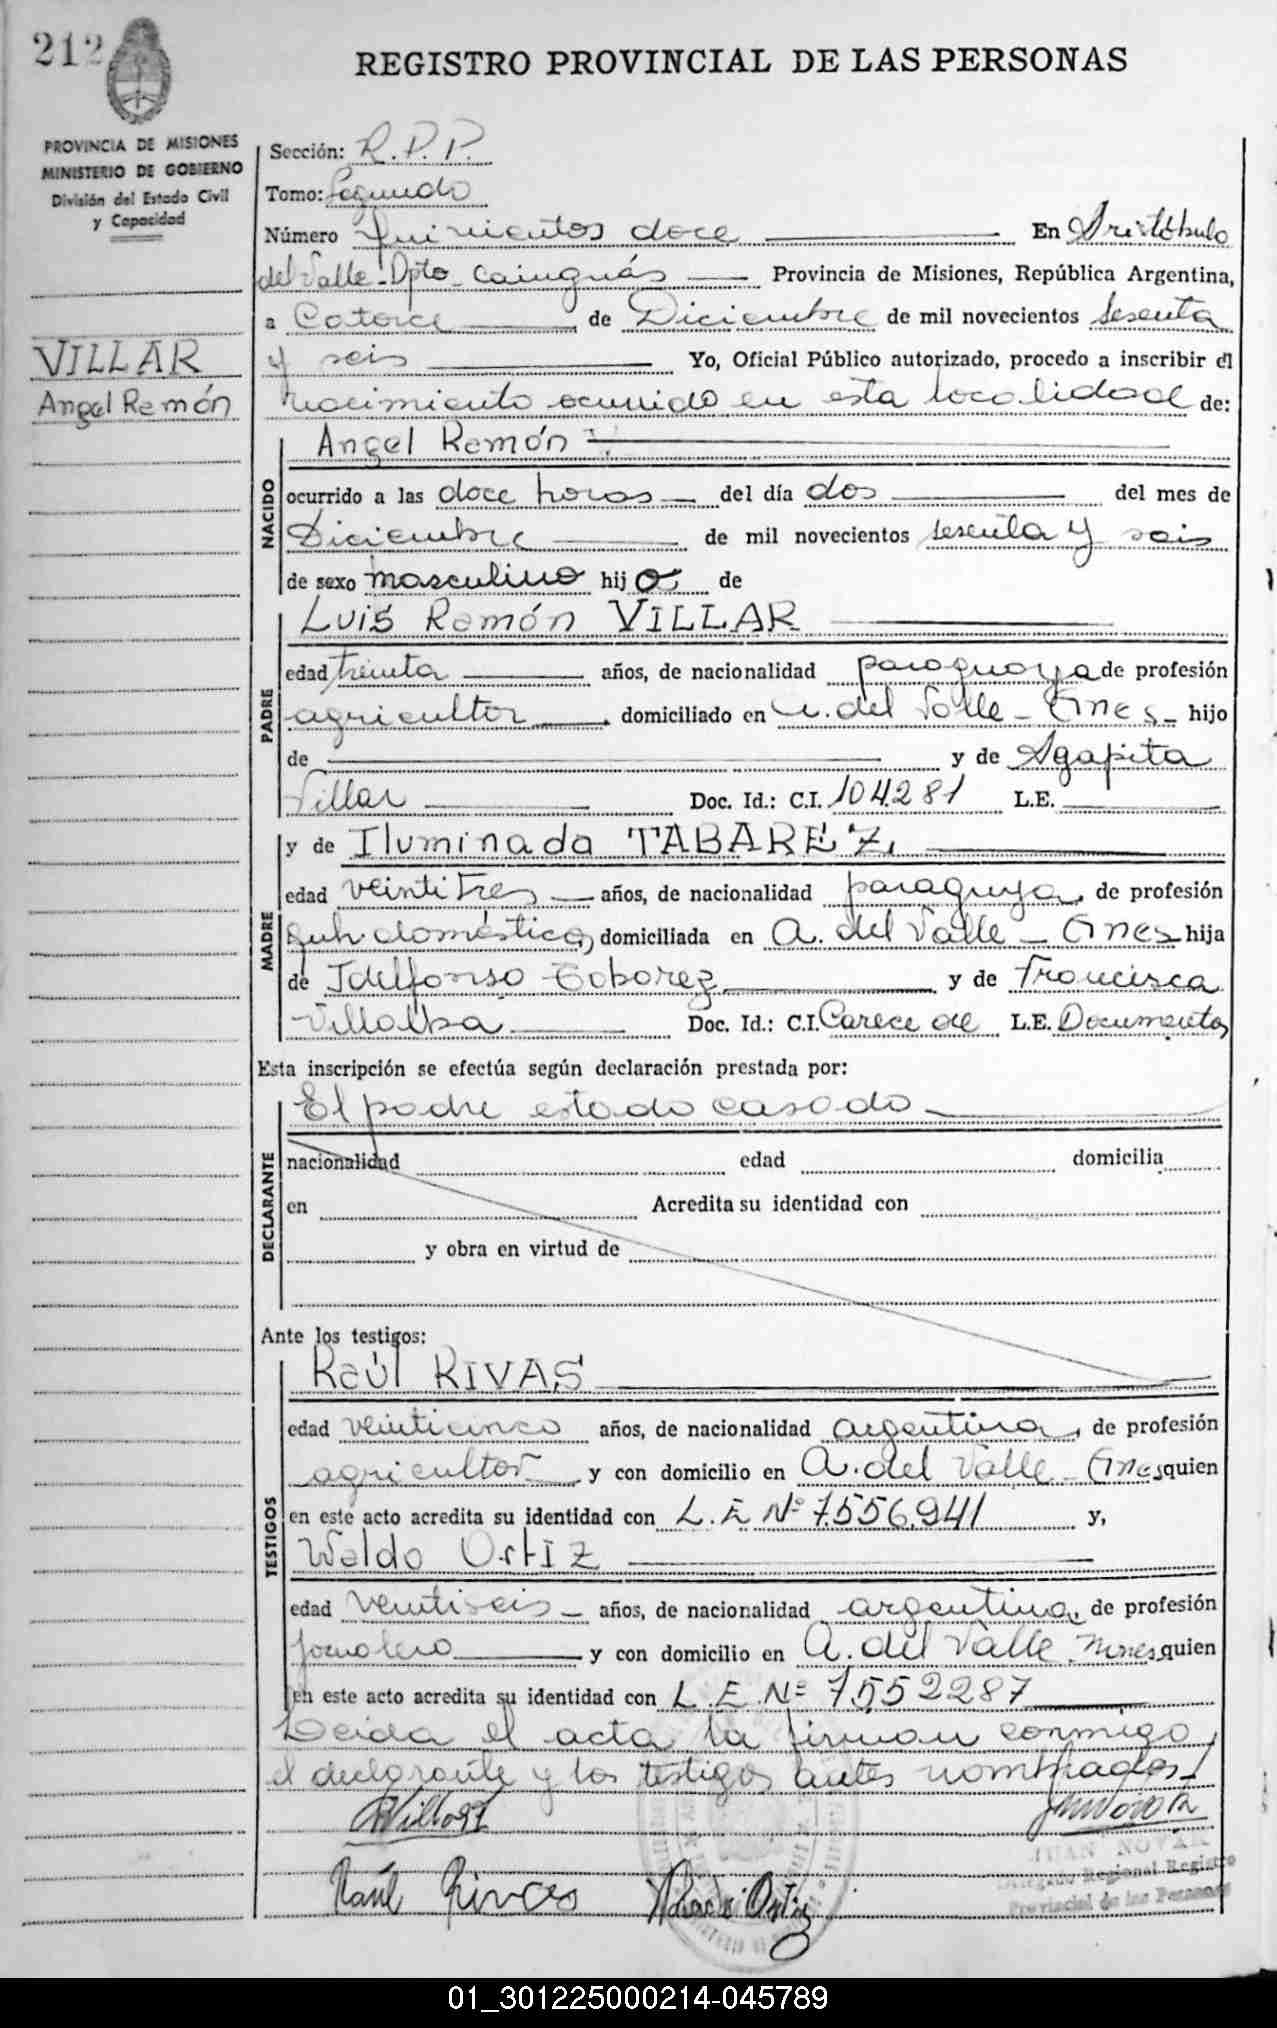 212
REGISTRO PROVINCIAL DE LAS PERSONAS
PROVINCIA DE MISIONES
MINISTERIO DE GOBIERNO
División del Estado Civil
y Capacidad
VILLAR
Angel Ramón
Sección: R.P.P.
Tomo: Segundo
Número quinientos doce En Aristóbulo
del Valle-Dpto- Cainguás Provincia de Misiones, República Argentina,
a Catorce de Diciembre de mil novecientos sesenta
y seis Yo, Oficial Público autorizado, procedo a inscribir el
nacimiento ocurrido en esta localidad de:
NACIDO
Angel Ramón
ocurrido a las doce horas del día dos del mes de
Diciembre de mil novecientos sesenta y seis
de sexo masculino hijo de
PADRE
Luis Ramón VILLAR
edad treinta años, de nacionalidad paraguaya de profesión
agricultor domiciliado en A. del Valle - hijo
de y de Agapita
Villar Doc. Id.: C.I. 104.281 L.E.
MADRE
y de Iluminada TABAREZ
edad veintitres años, de nacionalidad paraguya, de profesión
domésticos domiciliada en A. del Valle - hija
de Idelfonso Tabarez y de Francisca
Villalba Doc. Id.: C.I. Carece de L.E. Documentos
Esta inscripción se efectúa según declaración prestada por:
DECLARANTE
El padre estado casado
nacionalidad edad domicilia
en Acredita su identidad con
y obra en virtud de
Ante los testigos:
TESTIGOS
Raúl RIVAS
edad veinticinco años, de nacionalidad argentina, de profesión
agricultor y con domicilio en A. del Valle - quien
en este acto acredita su identidad con L.E. Nº 7.556.941 y,
Waldo Ortiz
edad veintiseis años, de nacionalidad argentina, de profesión
jornalero y con domicilio en A. del Valle. quien
en este acto acredita su identidad con L.E. Nº 7.552287
Leida el acta la firman conmigo
el declarante y los testigos antes nombrados
JUAN NOVAK
Delegado Regional Registro
Provincial de las Personas
Raúl Rivas Waldo Ortiz
01_301225000214-045789